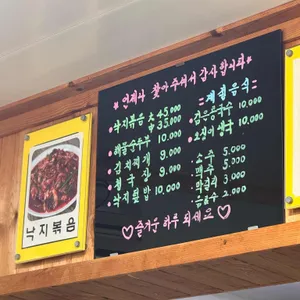 *언제나 찾아주셔서 감사합니다*
낙지볶음 大 45,000
中 35,000
해물순두부 10,000
김치찌개 9,000
청국장 9,000
낙지덮밥 10,000
=계절음식=
검은콩국수 10,000
오징어 10,000
소주 5,000
맥주 5,000
막걸리 3,000
음료수 2,000
♡즐거운 하루 되세요♡
낙지볶음